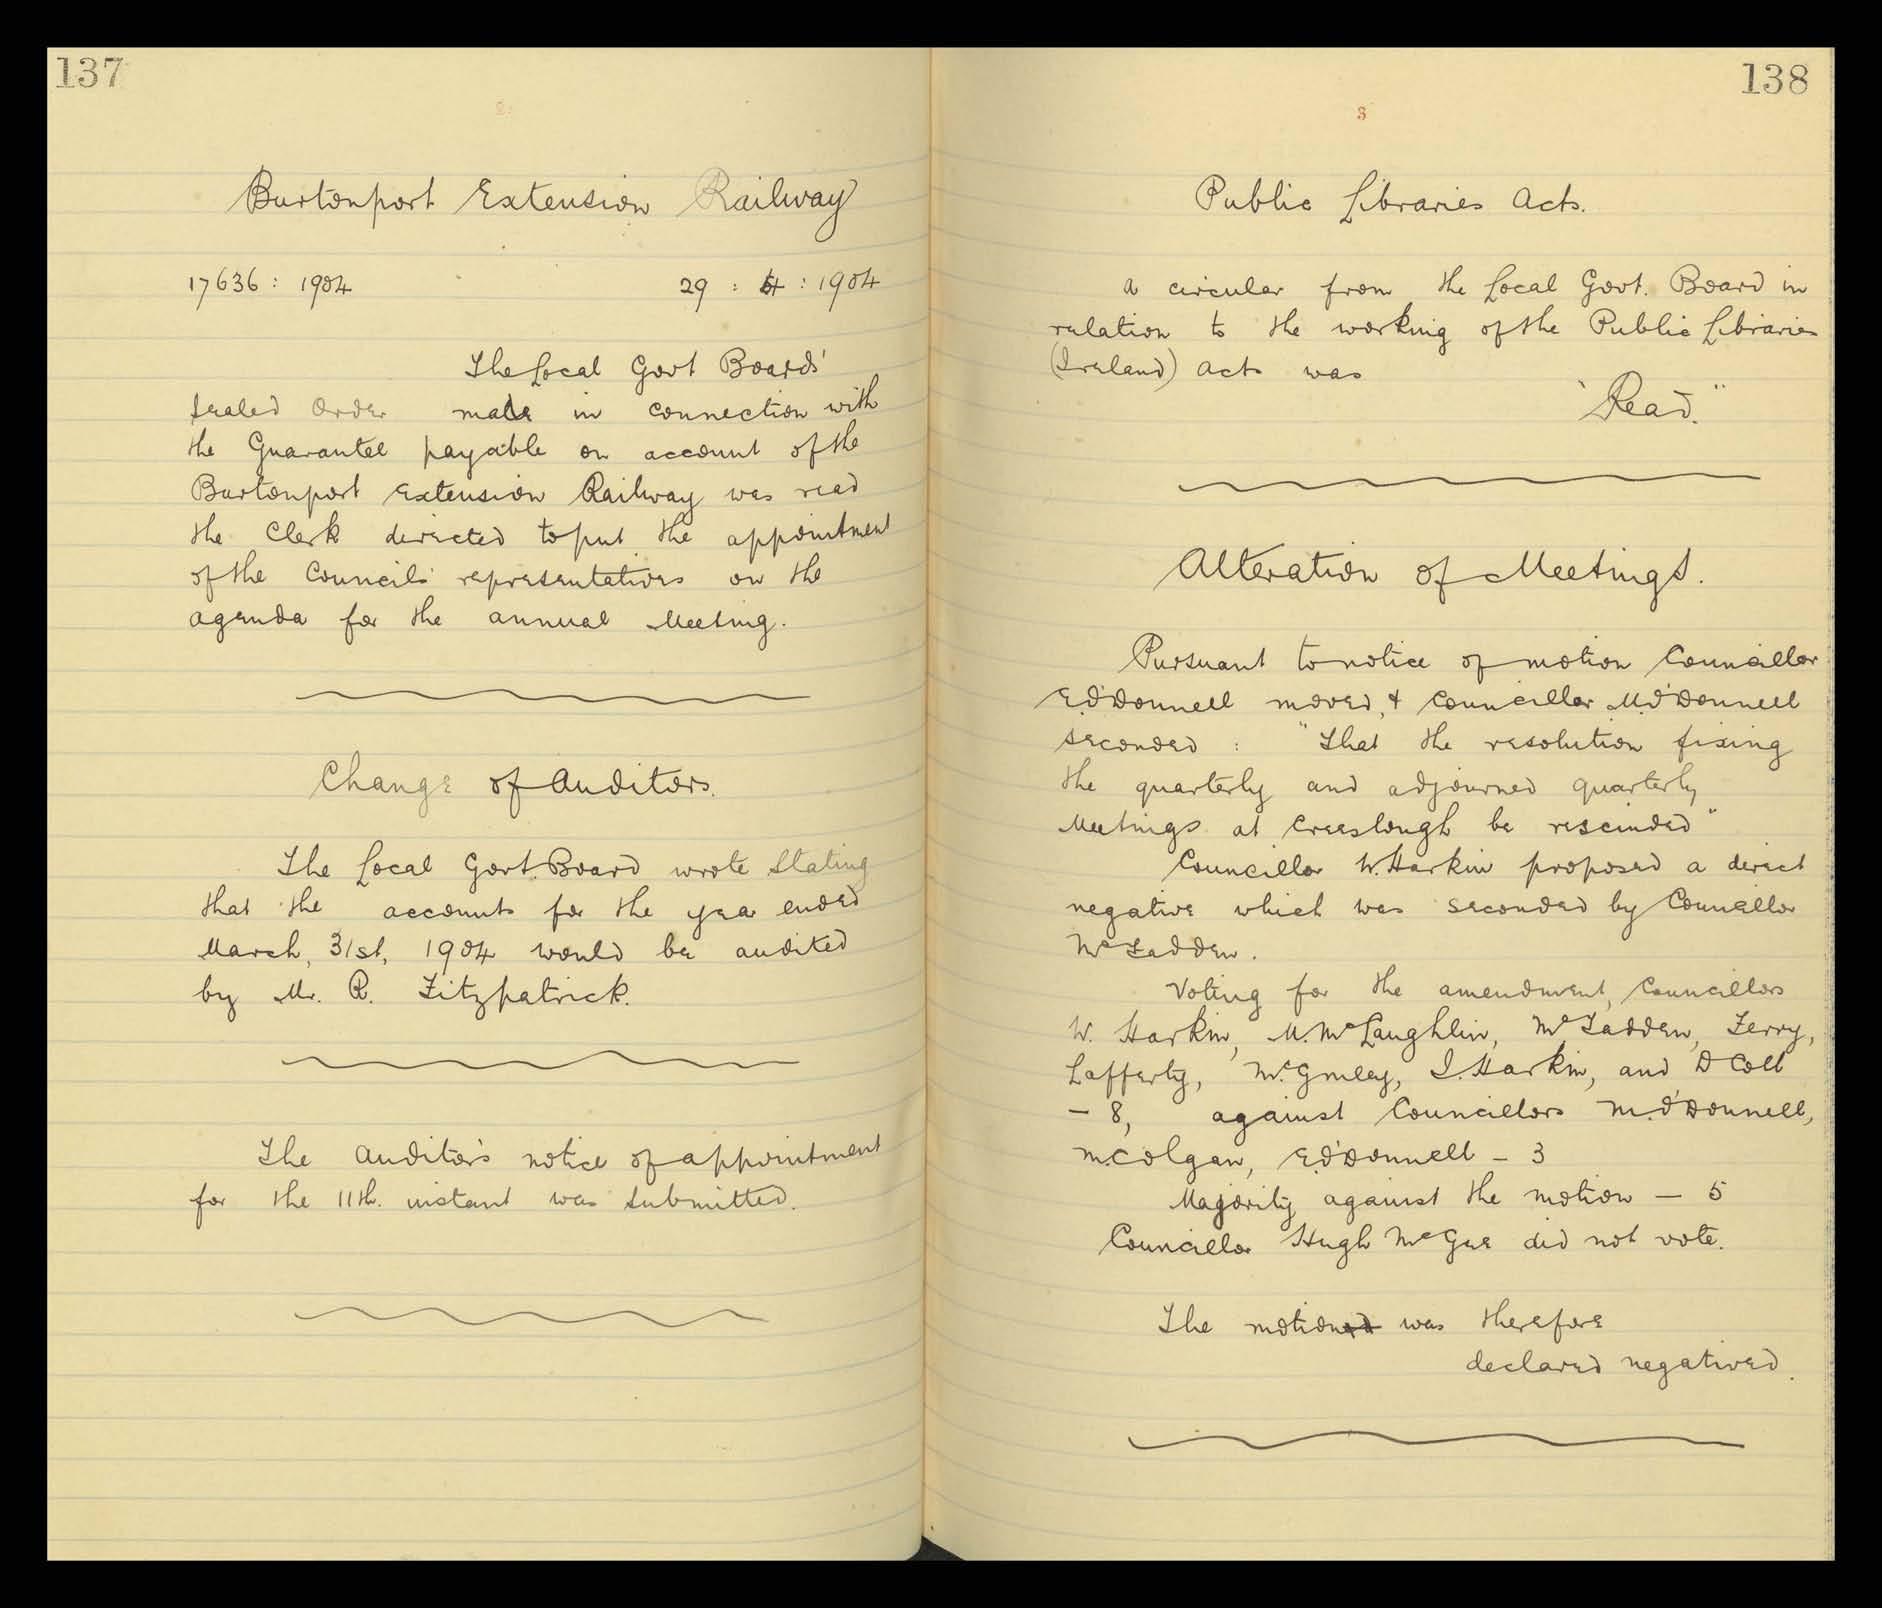 137
Burtonport Extension Railway
17636 : 1904 29 : 4 : 1904
The Local Govt Boards'
sealed Order made in connection with
the Guarantee payable on account of the
Burtonport Extension Railway was read
the Clerk directed to put the appointment
of the Councils' representatives on the
agenda for the annual Meeting.
Change of Auditors.
The Local Govt. Board wrote stating
that the accounts for the year ended
March, 31st, 1904 would be audited
by Mr. R. Fitzpatrick.
The Auditor's notice of appointment
for the 11th. instant was submitted.
138
3
Public Libraries Acts.
A circular from the Local Govt. Board in
relation to the working of the Public Libraries
(Ireland) Acts was
"Read."
Alteration of Meetings.
Pursuant to notice of motion Councillor
E. O'Donnell moved, & Councillor M. O'Donnell
seconded : "That the resolution fixing
the quarterly and adjourned quarterly
Meetings at Creeslough be rescinded"
Councillor W. Harkin proposed a direct
negative which was seconded by Councillor
McFadden.
Voting for the amendment, Councillors
W. Harkin, M. McLaughlin, McFadden, Ferry,
Lafferty, McGinley, J. Harkin, and D Coll
- 8, against Councillors M. O'Donnell,
M. Colgan, E. O'Donnell - 3
Majority against the motion - 5
Councillor Hugh McGee did not vote.
The motioned was therefore
declared negatived.